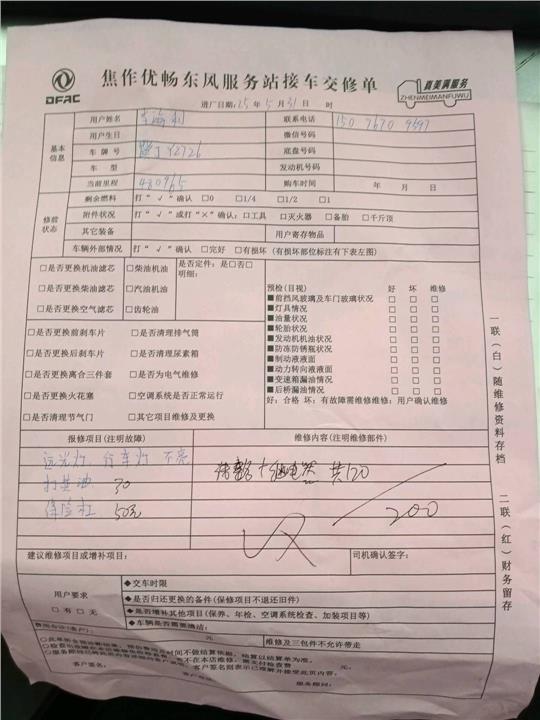 DFAC
焦作优畅东风服务站接车交修单
真美满服务
ZHENMEIMANFUWU
进厂日期:25年5月31日 时
基本信息
用户姓名
联系电话 150 7670 9597
用户生日
微信号码
车牌号 Y2726
底盘号码
车型
发动机号码
当前里程 480965
购车时间 年 月 日
修前状态
剩余燃料 打“√”确认 □0 □1/4 □1/2 □1
附件状况 打“√”或打“×”确认:□工具 □灭火器 □备胎 □千斤顶
其它装备
用户寄存物品
车辆外部情况 打“√”确认 □完好 □有损坏(有损坏部位标注有下表左图)
□是否更换机油滤芯 □柴油机油 是否定件:是□否□
明细:
□是否更换柴油滤芯 □汽油机油
□是否更换空气滤芯 □齿轮油
□是否更换前刹车片 □是否清理排气筒
□是否更换后刹车片 □是否清理尿素箱
□是否更换离合三件套 □是否为电气维修
□是否更换火花塞 □空调系统是否正常运行
□是否清理节气门 □其它项目维修及更换
预检(目视) 好 坏 维修
■前挡风玻璃及车门玻璃状况 □ □ □
■灯具情况 □ □ □
■油量状况 □ □ □
■轮胎状况 □ □ □
■发动机机油状况 □ □ □
■防冻防锈瓶状况 □ □ □
■制动液液面 □ □ □
■动力转向液液面 □ □ □
■变速箱漏油情况 □ □ □
■后桥漏油情况 □ □ □
好:合格 坏:有故障需维修维修:用户确认维修
报修项目(注明故障)
维修内容(注明维修部件)
远光灯 行车灯 不亮
+继电器 共120
打黄油 30
保险杠 50元
200
建议维修项目或增补项目:
司机确认签字:
用户要求
□有 □无
◆交车时限
◆是否归还更换的备件(保修项目不退还旧件)
◆是否增补其他项目(保养、年检、空调系统检查、加装项目等)
◆车辆是否需要清洁:
元
维修及三包件不允许带走
客户签名:
服务顾问:
一联(白)随维修资料存档
二联(红)财务留存